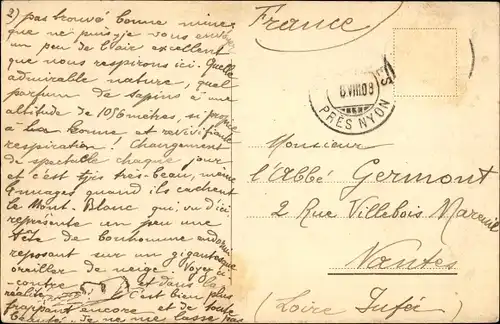 2) pas trouvé bonne mine
que ne puis-je vous envoyer
un peu de l'air excellent
que nous respirons ici. Quelle
admirable nature, quel
parfum de sapins à une
altitude de 1056 mètres, si propre
à la bonne et revivifiante
respiration! Changement
de spectacle chaque jour
et c'est très très-beau, même
les nuages quand ils cachent
le Mont-Blanc qui, vu d'ici
représente un peu une
tête de bonhomme endormi
reposant sur un gigantesque
oreiller de neige. Voyez ci-
contre et dans la
réalité c'est bien plus
frappant encore et de toute
beauté. Je ne me lasse pas
France
8 VIII 08
PRÈS NYON
Monsieur
l'Abbé Germont
2 Rue Villebois Mareuil
Nantes
(Loire Infér)